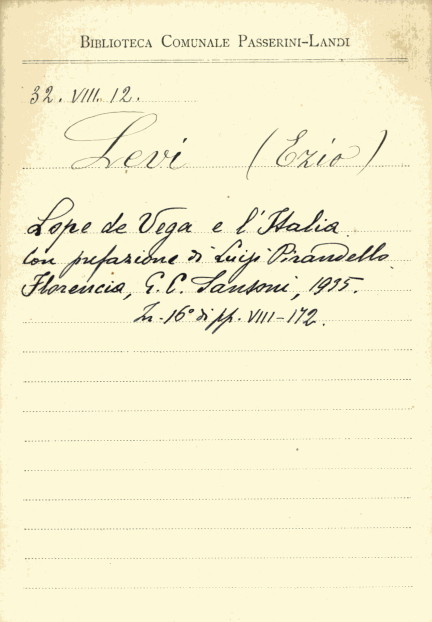 BIBLIOTECA COMUNALE PASSERINI-LANDI
32. VIII. 12.
Levi (Ezio)
Lope de Vega e l'Italia.
con prefazione di Luigi Pirandello.
Florencia, G. C. Sansoni, 1935.
In-16° di pp. VIII-172.